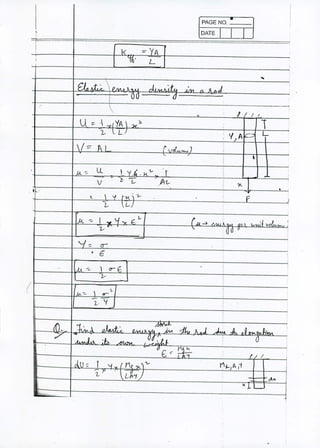 PAGE NO.
DATE
K eff. = YA/L
Elastic energy density in a rod
U = 1/2 × (YA/L) x²
Y, A
L
V = AL (volume)
u = U/V = 1/2 YA/L x² × 1/AL
x
F
= 1/2 Y (x/L)²
u = 1/2 × Y × ε² (u → energy per unit volume)
Y = σ/ε
u = 1/2 σ ε
u = 1/2 σ²/Y
Q. Find elastic energy stored in the rod due to elongation
under its own weight.
dU = 1/2 × Y ×
M, L, A, Y
dx
x